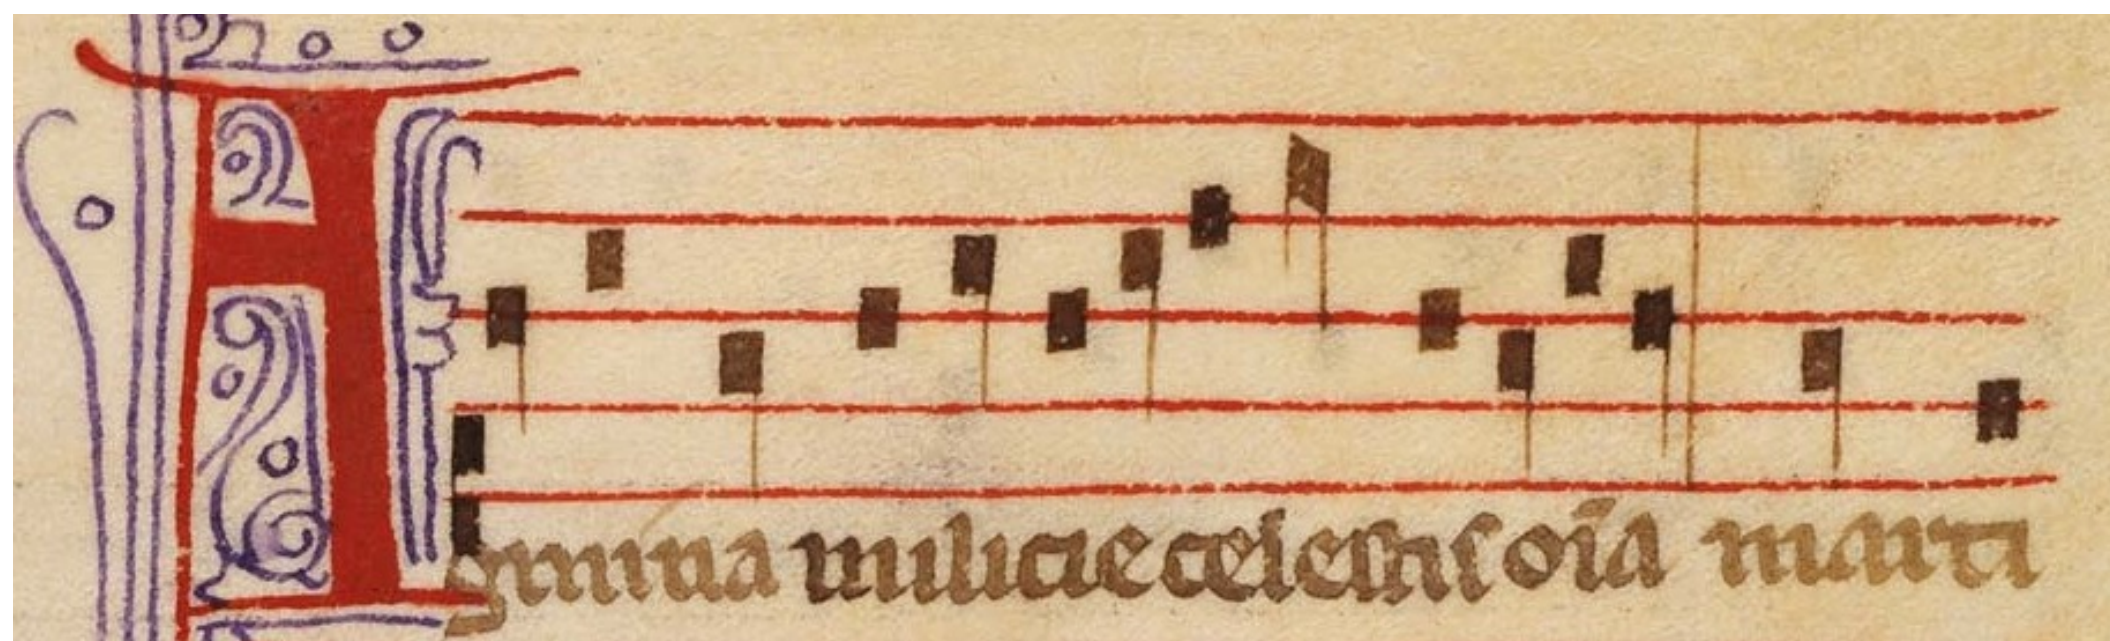 Agmina milicie celestis oīa marti